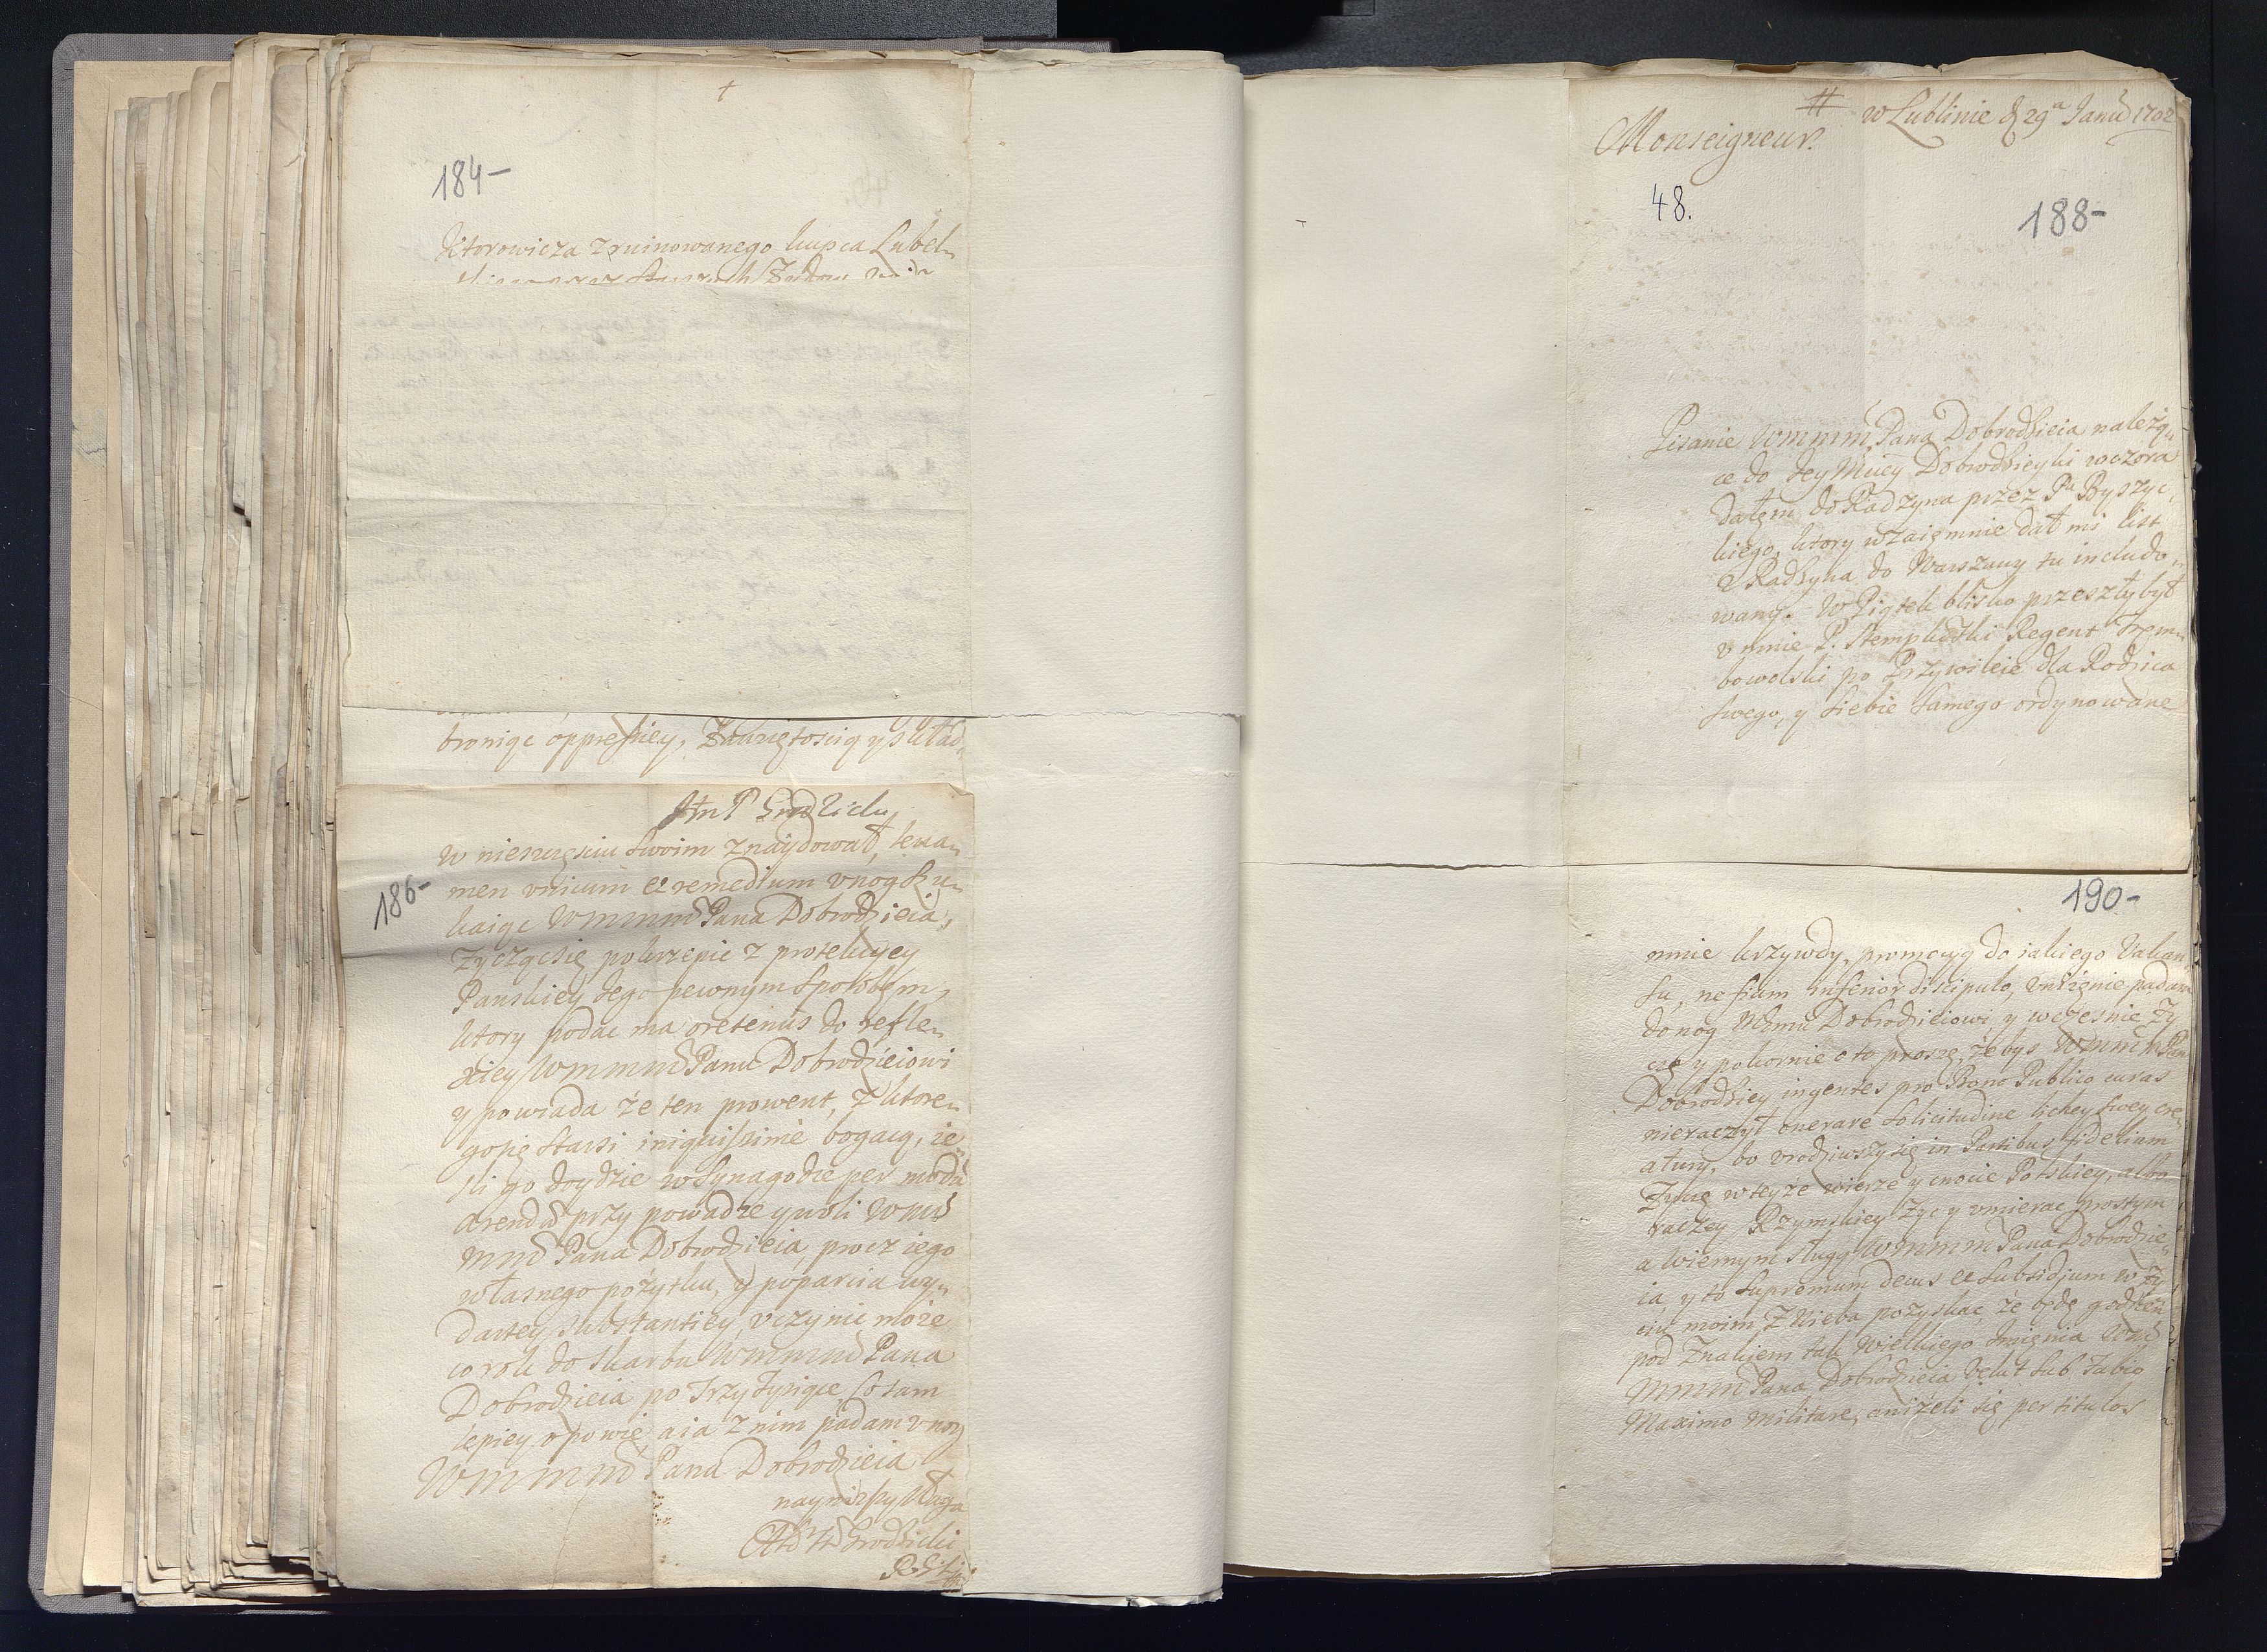 †
184-
ktorowicza zruinowanego kupca Lubel„
broniąc oppressiey, Zawziętością y skład„
JmP Grodzicki
w nieszczęsciu swoim znaydował, leua„
men vnicum et remedium vnog Szu„
186-
kaiąc WMMM Pana Dobrodzieia,
życząc się pokrzepic z protekcyey
Panskiey Jego pewnym sposobem,
ktory podac ma oretenus do refle„
xiey WMMM Panu Dobrodzieiowi
y powiada że ten prowent, z ktore„
go się starsi iniquissime bogacą, ie„
sli go doydzie w Synagodze per modũ
arendæ przy powadze y woli WM
MM Pana Dobrodzieia, procz iego
własnego pożytku, y poparcia wy„
dartey substantiey, vczynic może
co rok do skarbu WMMM Pana
Dobrodzieia po Trzy Tysiące, co sam
lepiey opowie, a ia z nim padam v nog
WMMM Pana Dobrodzieia
nayniższy sługa
Grodzicki
# w Lublinie d 29a Janũ 1702
Monseigneur.
48.
188-
Pisanie WMMM Pana Dobrodzieia należą„
ce do Jey Mucy Dobrodzieyki wczora
dałem do Radzyna przez Pa Byszyc„
kiego, ktory wzaiemnie dał mi list
z Radzyna do Warszawy tu includo„
wany. W Piątek blisko przeszły był
v mnie P. Stempkowski Regent Trem„
bowolski po Przywileie dla Rodzica
swego, y siebie samego ordynowane
190-
mnie krzywdy, promocyą do iakiego Vakan„
su, ne fiam inferior discipulo, vniżenie padam
do nog Memu Dobrodzieiowi, y wczesnie Zy
czę y pokornie o to proszę, żebys WMMM Pan
Dobrodziey ingentes pro Bono Publico curas
nieraczył onerare solicitudine lichey swey cre„
atury, bo vrodziwszy się in Partibus fidelium
Zyczę w teyże wierze y cnocie Polskiey, albo
raczey Rzymskiey życ y vmierac prostym
a wiernym sługą WMMM Pana Dobrodzie„
ia, y to supremum decus et subsidium w ży
ciu moim z Nieba pozyskac, że będę godzien
pod Znakiem tak Wielkiego Imienia WM
MMM Pana Dobrodzieia velut sub Fabio
Maximo militare, aniżeli się per titulos